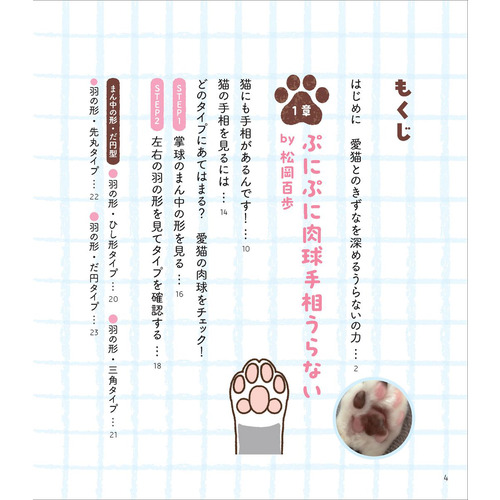 もくじ
はじめに 愛猫とのきずなを深めるうらないの力 … 2
1章
ぷにぷに肉球手相うらない
by 松岡百歩
猫にも手相があるんです! … 10
猫の手相を見るには … 14
どのタイプにあてはまる? 愛猫の肉球をチェック!
STEP1 掌球のまん中の形を見る … 16
STEP2 左右の羽の形を見てタイプを確認する … 18
まん中の形・だ円型
●羽の形・ひし形タイプ … 20
●羽の形・三角タイプ … 21
●羽の形・先丸タイプ … 22
●羽の形・だ円タイプ … 23
4